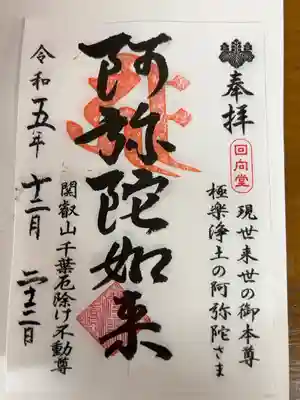 奉拝
回向堂
現世来世の御本尊
極楽浄土の阿弥陀さま
阿弥陀如来
関叡山 千葉厄除け不動尊
令和五年 十二月 二十三日